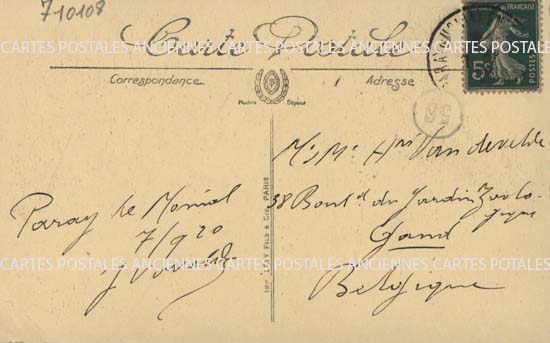 710108
Carte Postale
Correspondance
Adresse
Modèle Déposé
FRANÇAISE
POSTES
5c
PARAY
56
Mr Mme Hri Vandevelde
38 Boul.d du Jardin Zoolo
gique
Gand
Belgique
Paray le Monial
7/9 20
IMP. LEVY FILS & CIE, PARIS
CARTES POSTALES ANCIENNES CARTES POSTALES ANCIENNES CARTES POSTALES
CARTES POSTALES ANCIENNES CARTES POSTALES ANCIENNES CARTES POSTALES